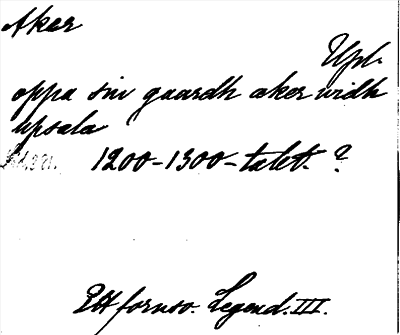 Aker
Upl.
oppa sin gaardh aker widh
upsala
1200-1300-talet. ?
Ett fornsv. Legend. III.